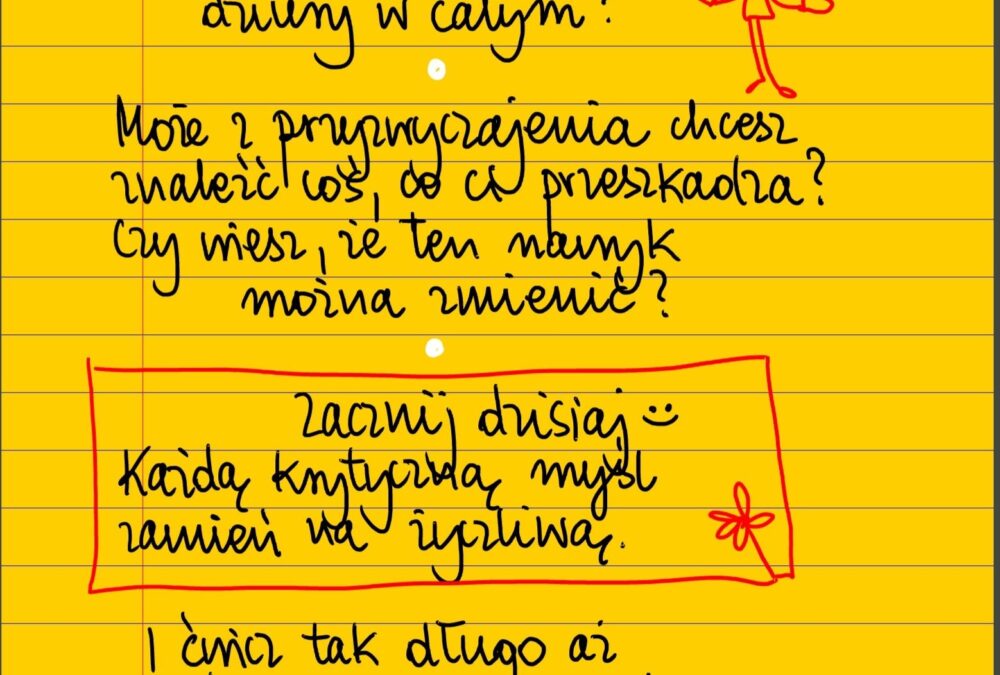 dziury w całym?
Może z przyzwyczajenia chcesz
znaleźć coś, co ci przeszkadza?
Czy wiesz, że ten nawyk
można zmienić?
Zacznij dzisiaj
Każdą krytyczną myśl
zamień na życzliwą.
I ćwicz tak długo aż